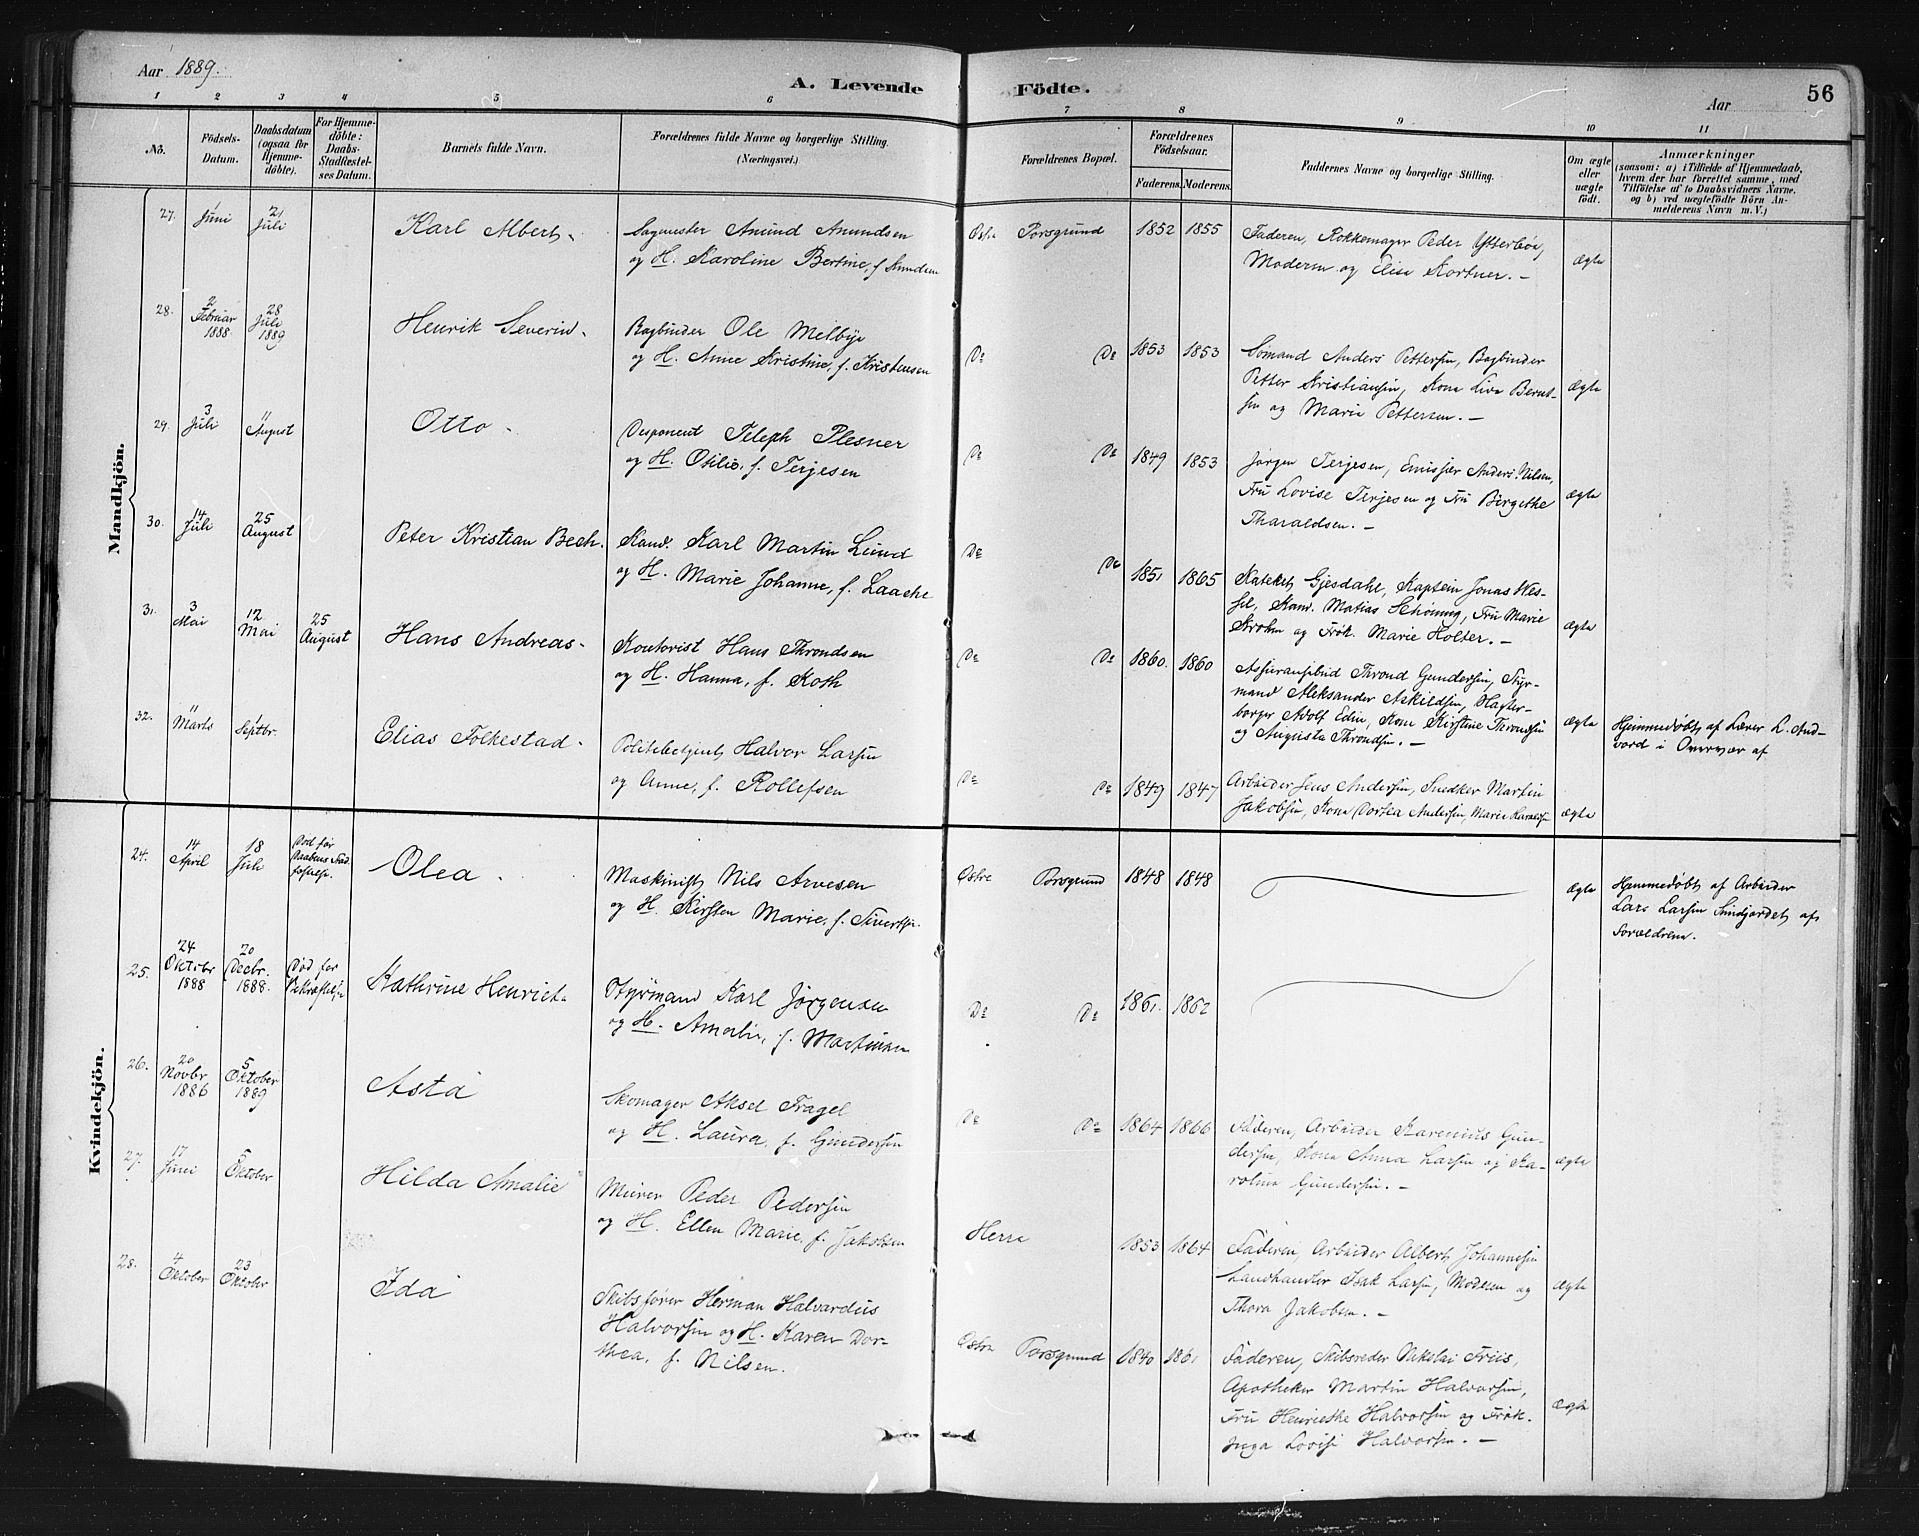 Aar 1889.
A. Levende
Födte.
Aar
56
1 2 3 4 5 6 7 8 9 10 11
No.
Födsels-
Datum.
Daabsdatum
(ogsaa for
Hjemme-
döbte).
For Hjemme-
döbte:
Daabs-
Stadfæstel-
ses Datum.
Barnets fulde Navn.
Forældrenes fulde Navne og borgerlige Stilling.
(Næringsvei.)
Forældrenes Bopæl.
Forældrenes
Födselsaar.
Faderens.
Moderens.
Faddernes Navne og borgerlige Stilling.
Om ægte
eller
uægte
født.
Anmærkninger
(saasom: a) i Tilfælde af Hjemmedaab,
hvem der har forrettet samme, med
Tilföielse af to Daabsvidners Navne.
og b) ved uægtefödte Börn An-
melderens Navn m. V.)
Mandkjön.
27.
Juni
21
Juli
Karl Albert
Sagmester Amund Amundsen
og H. Karoline Bertine, f.
Østre Porsgrund
1852 1855
Faderen, Rokkemager Peder Ytterbøe,
Moderen og Elise Kortner. –
ægte
28.
2
Februar
1888
28
Juli
1889
Henrik Severin
Bogbinder Ole Melbye
og H. Anne Kristine, f. Kristensen
Do Do
1853 1853
Sømand Anders Pettersen, Bogbinder
Petter Kristiansen, Kone Live Bernt-
sen og Marie Pettersen. –
ægte
29.
3
Juli
11
August
Otto
Disponent Teleph Plesner
og H. Otilie, f. Terjesen
Do Do
1849 1853
Jørgen Terjesen, Anders Nilsen,
Fru Lovise Terjesen og Fru Birgithe
Tharaldsen. –
ægte
30.
14
Juli
25
August
Peter Kristian Bech
Kand. Karl Martin Lund
og H. Marie Johanne, f. Laache
Do Do
1851 1865
Kateket Gjesdahl, Kaptein Jonas Wes-
sel, Kand. Matias Schøning, Fru Marie
Strohm og Frøk. Marie Holter. –
ægte
31.
3
Mai
12
Mai
25
August
Hans Andreas
Kontorist Hans Throndsen
og H. Hanna, f. Koth
Do Do
1860. 1860
Throud Gundersen, Styr-
mand Aleksander Askildsen,
Adolf Edin, Kone Kirstine Throndsen
og Augusta Throndsen. –
ægte
Hjemmedøbt af Lærer L. And-
vord i Overvær af
32.
11
Marts
1
Septbr.
Elias Folkestad
Politibetjent Halvor Larsen
og Anne, f. Rollefsen
Do Do
1849 1847
Arbeider Jens Andersen, Snedker Martin
Jakobsen, Kone Dortea Andersen, Marie
ægte
Kvindekjön.
24.
14
April
18
Juli
Død før
Daabens Stad-
fæstelse.
Olea
Maskinist Nils Arvesen
og H. Kirsten Marie, f. Sivertsen.
Østre Porsgrund
1848 1848
ægte
Hjemmedøbt af Arbeider
Lars Larsen af
Forældrene.
25.
24
Oktobr
1888
20
Decbr.
1888.
Død før
Kathrine Henriet
Styrmand Karl Jørgensen
og H. Amalie, f. Martinsen
Do Do
1861. 1862
26.
20
Novbr
1886
5
Oktober
1889
Asta
Skomager Aksel Fragel
og H. Laura, f. Gundersen
Do Do
1864 1866
Faderen, Arbeider Karenius Gun-
dersen, Kone Anna Larsen og Ka-
roline Gundersen. –
ægte
27.
17
Juni
5
Oktober
Hilda Amalie
Murer Peder Pedersen
og H. Ellen Marie, f. Jakobsen
Herre
1853 1864
Faderen, Arbeider Albert Johannesen
Landhandler Isak Larsen, Moderen og
Thora Jakobsen. –
ægte
28.
4
Oktober
23
Oktober
Ida
Skibsfører Herman Halvardus
Halvorsen og H. Karen Dor-
thea, f. Nilsen.
Østre Porsgrund
1840 1861
Faderen, Skibsreder Nikolai Friis,
Apotheker Martin Halvorsen,
Fru Henriette Halvorsen og Frøk.
Inga Lovise Halvorsen. –
ægte